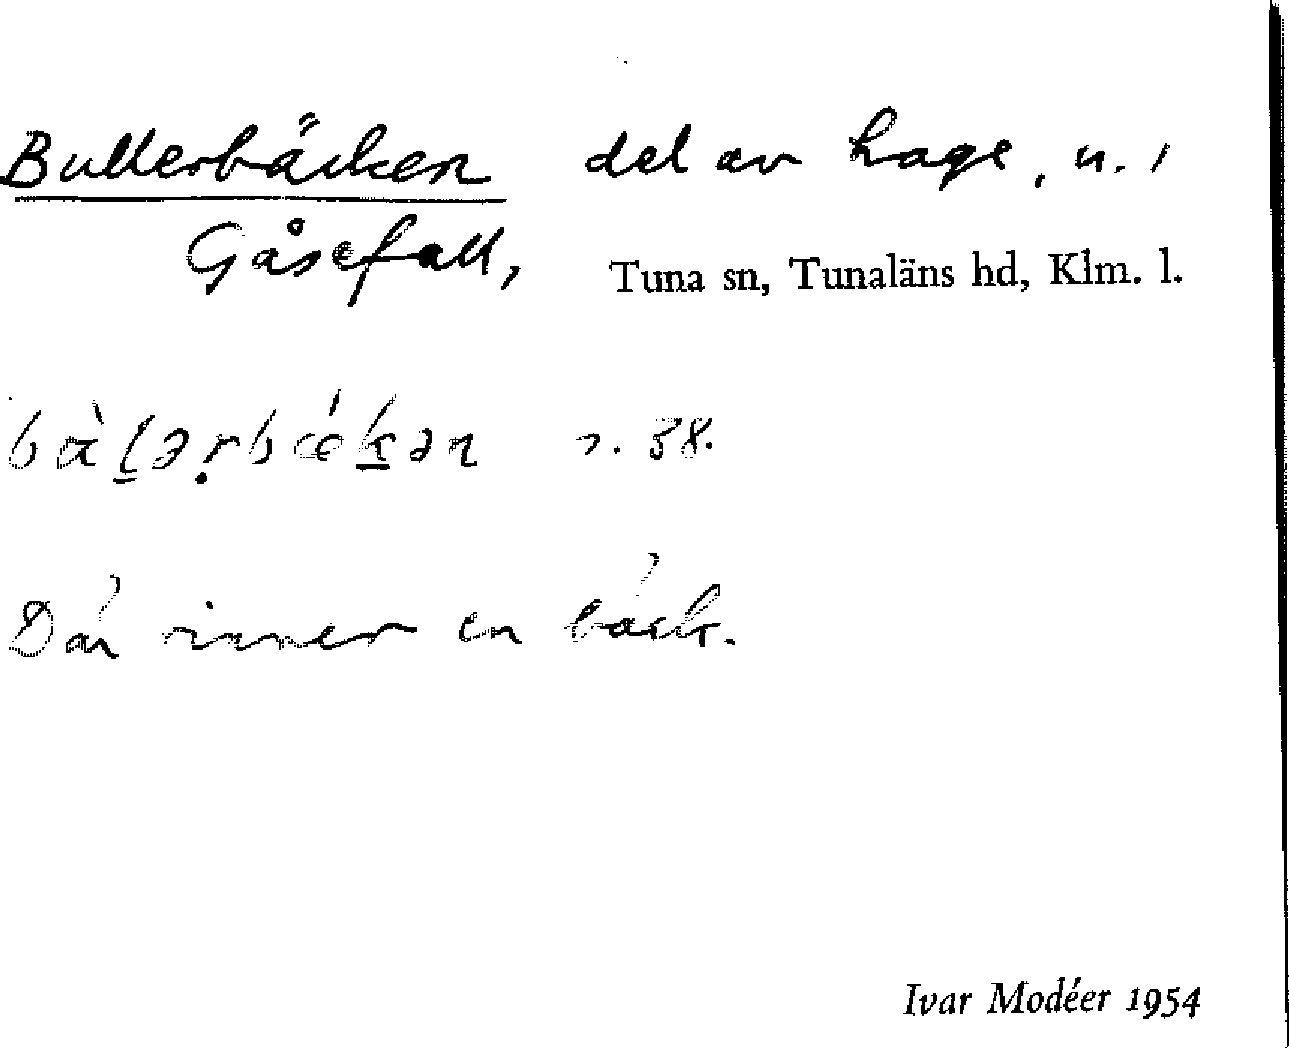 Bullerbäcken del av hage, u. i
Gåsefall, Tuna sn, Tunaläns hd, Klm. l.
s. 38.
Där rinner en bäck.
Ivar Modéer 1954